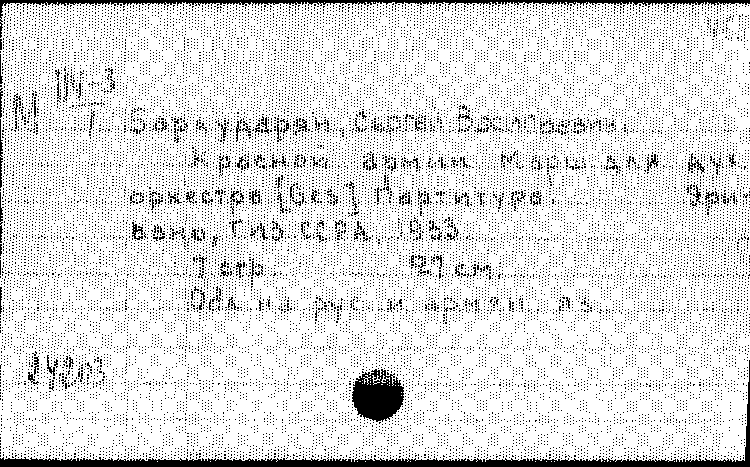 М III-3
1
Бархударян, Сергей Васильевич.
Красной армии. Марш для дух.
оркестра [Ges] Партитура. Эри-
вань, ГИЗ ССРА, 1933
7 стр. 27 см.
Обл. на рус. и армян. яз.
24203